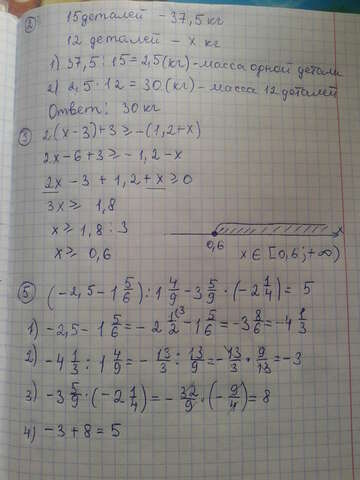 ② 15 деталей – 37,5 кг
12 деталей – x кг
1) 37,5 : 15 = 2,5 (кг) – масса одной детали
2) 2,5 · 12 = 30 (кг) – масса 12 деталей
Ответ: 30 кг
③ 2(x-3)+3 ≥ -(1,2+x)
2x-6+3 ≥ -1,2-x
2x -3 + 1,2 + x ≥ 0
3x ≥ 1,8
x ≥ 1,8 : 3
x ≥ 0,6
0,6 x
x ∈ [0,6; +∞)
⑤ (-2,5 - 1 5/6) : 1 4/9 - 3 5/9 · (-2 1/4) = 5
1) -2,5 - 1 5/6 = -2 1/2 (3 - 1 5/6 = -3 8/6 = -4 1/3
2) -4 1/3 : 1 4/9 = - 13/3 : 13/9 = - 13/3 · 9/13 = -3
3) -3 5/9 · (-2 1/4) = - 32/9 · (- 9/4) = 8
4) -3 + 8 = 5